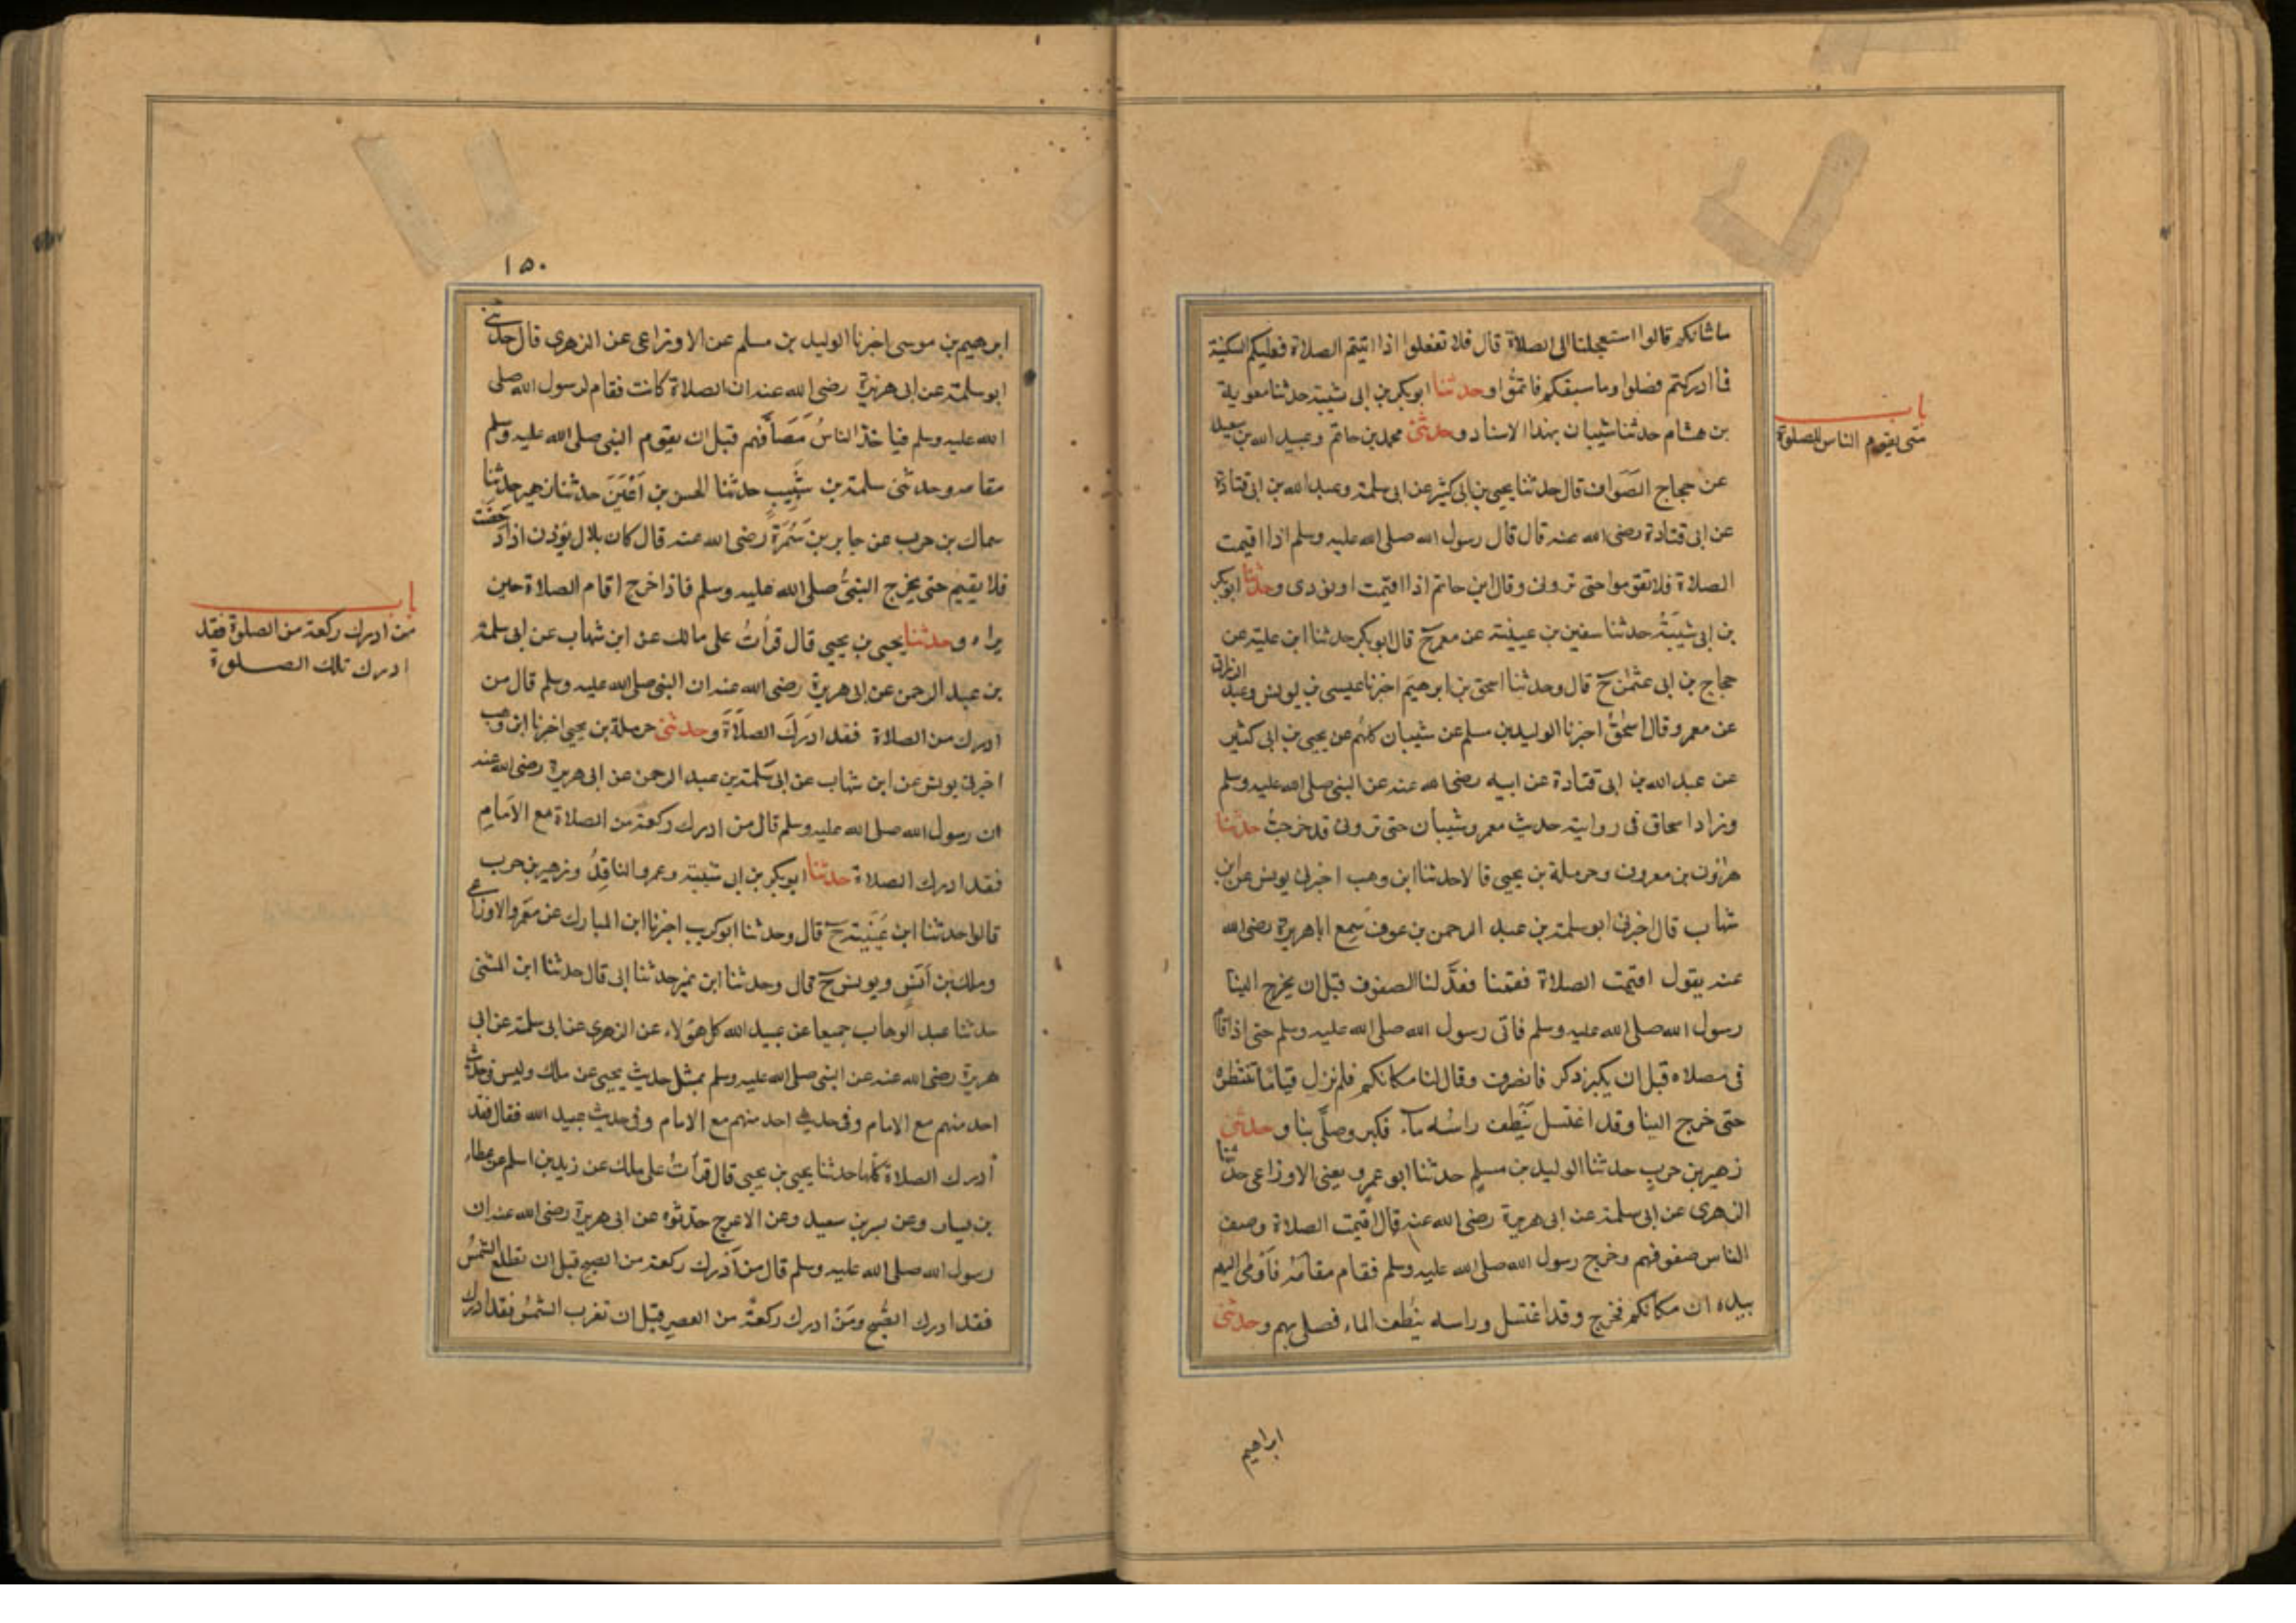 ما شانكم قالوا استعجلنا الى الصلاة قال فلا تفعلوا اذا اتيتم الصلاة فعليكم السكينة
فما ادركتم فصلوا وما سبقكم فاتموا وحدثنا ابو بكر بن ابى شيبة حدثنا معوية
بن هشام حدثنا شيبان بهذا الاسناد وحدثنى محمد بن حاتم وعبيد الله بن سعيد
باب
متى يقوم الناس للصلوة
عن حجاج الصَوَاف قال حدثنا يحيى بن ابى كثير عن ابى سلمة وعبد الله بن ابى قتادة
عن ابى قتادة رضى الله عنه قال قال رسول الله صلى الله عليه وسلم اذا اقيمت
الصلاة فلا تقوموا حتى ترونى وقال ابن حاتم اذا اقيمت او نودى وحدثنا ابو بكر
بن ابى شَيْبَةُ حدثنا سفين بن عيينة عن معمر ح قال ابو بكر حدثنا ابن علية عن
حجاج بن ابى عثمٰن ح قال وحدثنا اسحق بن ابرهيم اخبرنا عيسى بن يونس وعبد الرزاق
عن معمر وقال اسحٰقُ اخبرنا الوليد بن مسلم عن شيبان كلهُم عن يحيى بن ابى كثير
عن عبد الله بن ابى قتادة عن ابيه رضى الله عنه عن النبى صلى الله عليه وسلم
وزاد اسحاق فى روايته حديث معمر وشيبان حتى ترونى قد خرجتُ حدثنا
هارون بن معروف وحرملة بن يحيى قالا حدثنا ابن وهب اخبرنى يونس عن ابن
شهاب قال اخبرنى ابو سلمة بن عبد الرحمن بن عوف سمع ابا هريرة رضى الله
عنه يقول اقيمت الصلاة فقمنا فعدَّلنا الصفوف قبل ان يخرج الينا
رسول الله صلى الله عليه وسلم فاتى رسول الله صلى الله عليه وسلم حتى اذا قام
فى مصلاه قبل ان يكبر ذكر فانصرف وقال لنا مكانكم فلم نزل قياما ننتظره
حتى خرج الينا وقد اغتسل يَنْطِف راسُه مآء فكبر وصلَّى بنا وحدثنى
زهير بن حربٍ حدثنا الوليد بن مسلم حدثنا ابو عمرو يعنى الاوزاعى حدّثنا
الزهرى عن ابى سلمة عن ابى هريرة رضى الله عنه قال اقيمت الصلاة وصف
الناس صفوفهم وخرج رسول الله صلى الله عليه وسلم فقام مقامَهُ فاَومى اليهم
بيده ان مكانكم فخرج وقد اغتسل وراسه ينطف الماء فصلى بهم وحدثنى
ابراهيم
١٥٠
ابرهيم بن موسى اخبرنا الوليد بن مسلم عن الاوزاعى عن الزهرى قال حدثنى
ابو سلمة عن ابى هريرة رضى الله عنه ان الصلاة كانت فقام لرسول الله صلى
الله عليه وسلم فياخذ الناسُ مَصَافَّهم قبل ان يقوم النبى صلى الله عليه وسلم
مقامه وحدثنى سلمة بن شَبِيبٍ حدثنا الحسن بن اَعْيَنَ حدثنا زهير حدثنا
سماك بن حرب عن جابر بن سَمُرَةَ رضى الله عنه قال كان بلال يؤذن اذا دَحَضَت
فلا يقيم حتى يخرج النبىُّ صلى الله عليه وسلم فاذا خرج اقام الصلاة حين
باب
من ادرك ركعة من الصلوة فقد
ادرك تلك الصلوة
يراه وحدثنا يحيى بن يحيى قال قرأتُ على مالك عن ابن شهاب عن ابى سلمة
بن عبد الرحمن عن ابى هريرة رضى الله عنه ان النبى صلى الله عليه وسلم قال من
ادرك من الصلاة فقد ادرَكَ الصلاَةَ وحدثنى حرملة بن يحيى اخبرنا ابن وهب
اخبرنى يونس عن ابن شهاب عن ابى سَلمة بن عبد الرحمن عن ابى هريرة رضى الله عنه
ان رسول الله صلى الله عليه وسلم قال من ادرك ركعة من الصلاة مع الاَمامِ
فقد ادرك الصلاة حدثنا ابو بكر بن ابى شيبة وعمرو الناقِدُ وزهير بن حرب
قالوا حدثنا ابن عُيَيْنَة ح قال وحدثنا ابو كريب اخبرنا ابن المبارك عن معمر والاوزاعى
وملك بن اَنَسٍ ويونس ح قال وحدثنا ابن نمير حدثنا ابى قال حدثنا ابن المثنى
حدثنا عبد الوهاب جميعا عن عبيد الله كل هؤلاء عن الزهرى عن ابى سلمة عن ابى
هريرة رضى الله عنه عن النبى صلى الله عليه وسلم بمثل حديث يحيى عن ملك وليس فى حديث
احد منهم مع الامام وفى حديث احد منهم مع الامام وفى حديث عبيد الله فقال فقد
أدرك الصلاة كلها حدثنا يحيى بن يحيى قال قرأتُ على ملك عن زيد بن اسلم عن عطاء
بن يسار وعن بسر بن سعيد وعن الاعرج حدّثوه عن ابى هريرة رضى الله عنه ان
رسول الله صلى الله عليه وسلم قال من اَدْرك ركعة من الصبح قبل ان تطلع الشمسُ
فقد ادرك الصُّبح ومَنْ ادرك ركعةً من العصر قبل ان تغرب الشمسُ فقد ادرك